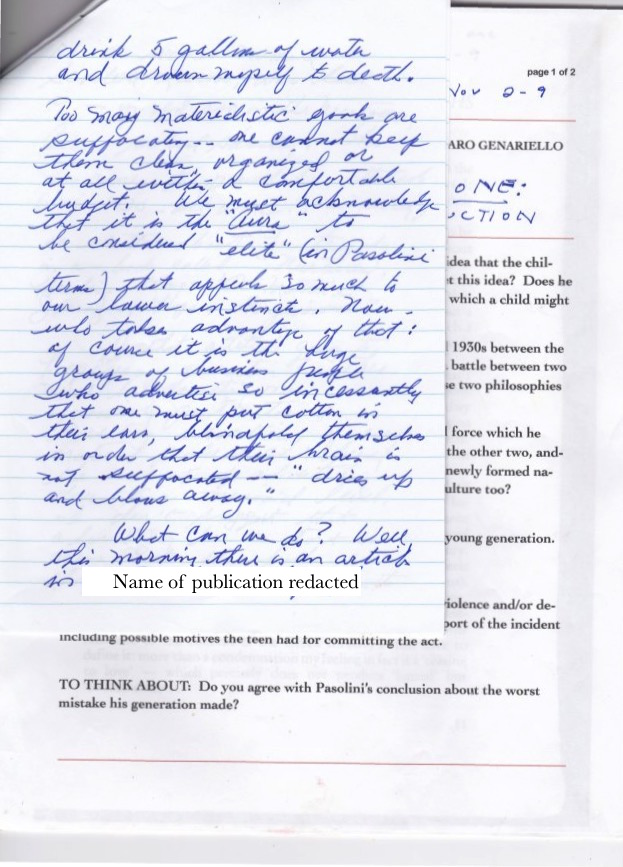 drink 5 gallons of water
and drown myself to death.
Too many materialistic goods are
suffocating -- one cannot keep
them clean, organized or
at all within a comfortable
budget. We must acknowledge
that it is the "aura" to
be considered "elite" (in Pasolini
terms) that appeals so much to
our lower instincts. Now -
who takes advantage of that:
of course it is the huge
groups of business people
who advertise so incessantly
that one must put cotton in
their ears, blindfold themselves
in order that their brain is
not suffocated -- "dries up
and blows away."
What can we do? Well,
this morning there is an article
in Name of publication redacted
page 1 of 2
Nov 2-9
ARO GENARIELLO
ONE:
CTION
idea that the chil-
t this idea? Does he
which a child might
1930s between the
battle between two
se two philosophies
force which he
the other two, and-
newly formed na-
ulture too?
young generation.
iolence and/or de-
port of the incident
including possible motives the teen had for committing the act.
TO THINK ABOUT: Do you agree with Pasolini's conclusion about the worst
mistake his generation made?